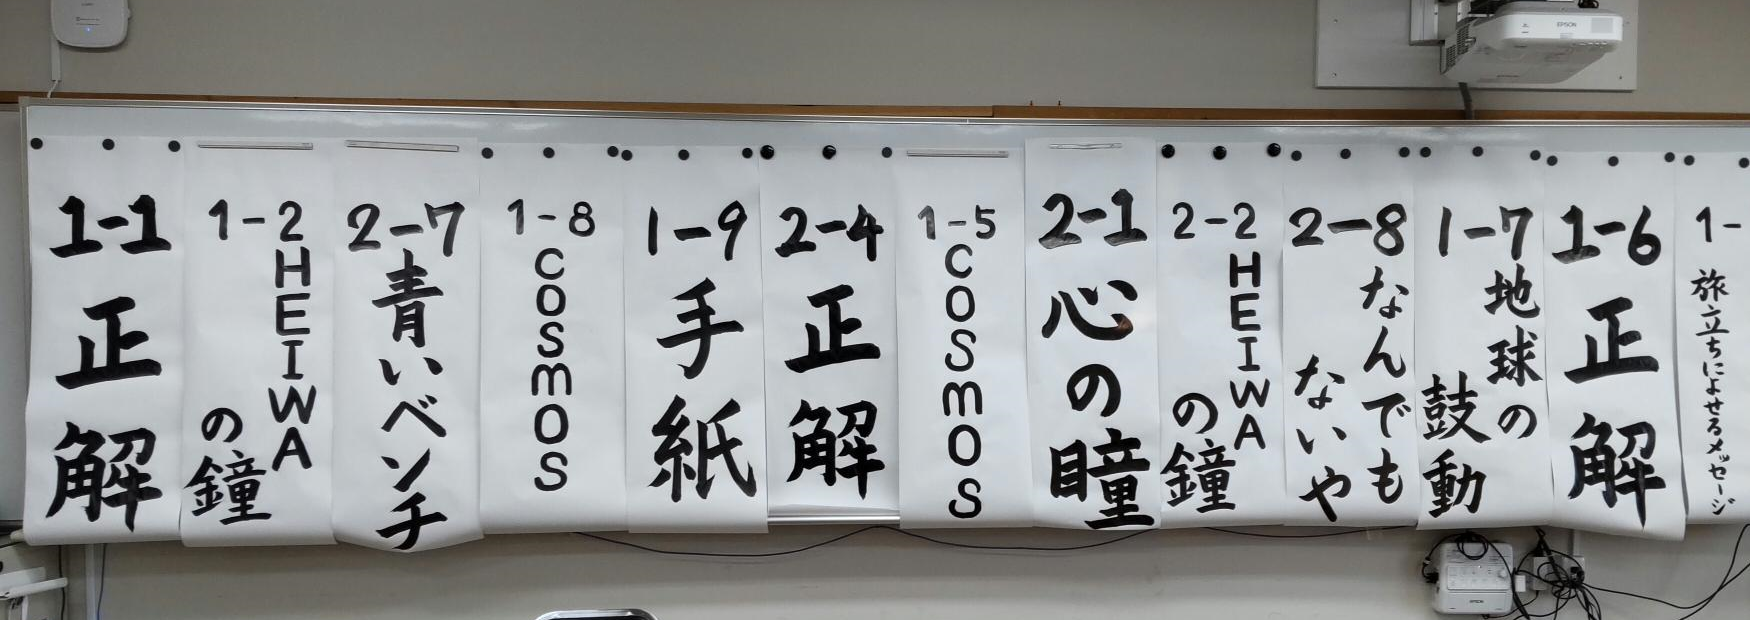 1-1
正解
1-2
HEIWA
の鐘
2-7
青いベンチ
1-8
COSMOS
1-9
手紙
2-4
正解
1-5
COSMOS
2-1
心の瞳
2-2
HEIWA
の鐘
2-8
なんでも
ないや
1-7
地球の
鼓動
1-6
正解
1-
旅立ちによせるメッセージ
EPSON
EPSON